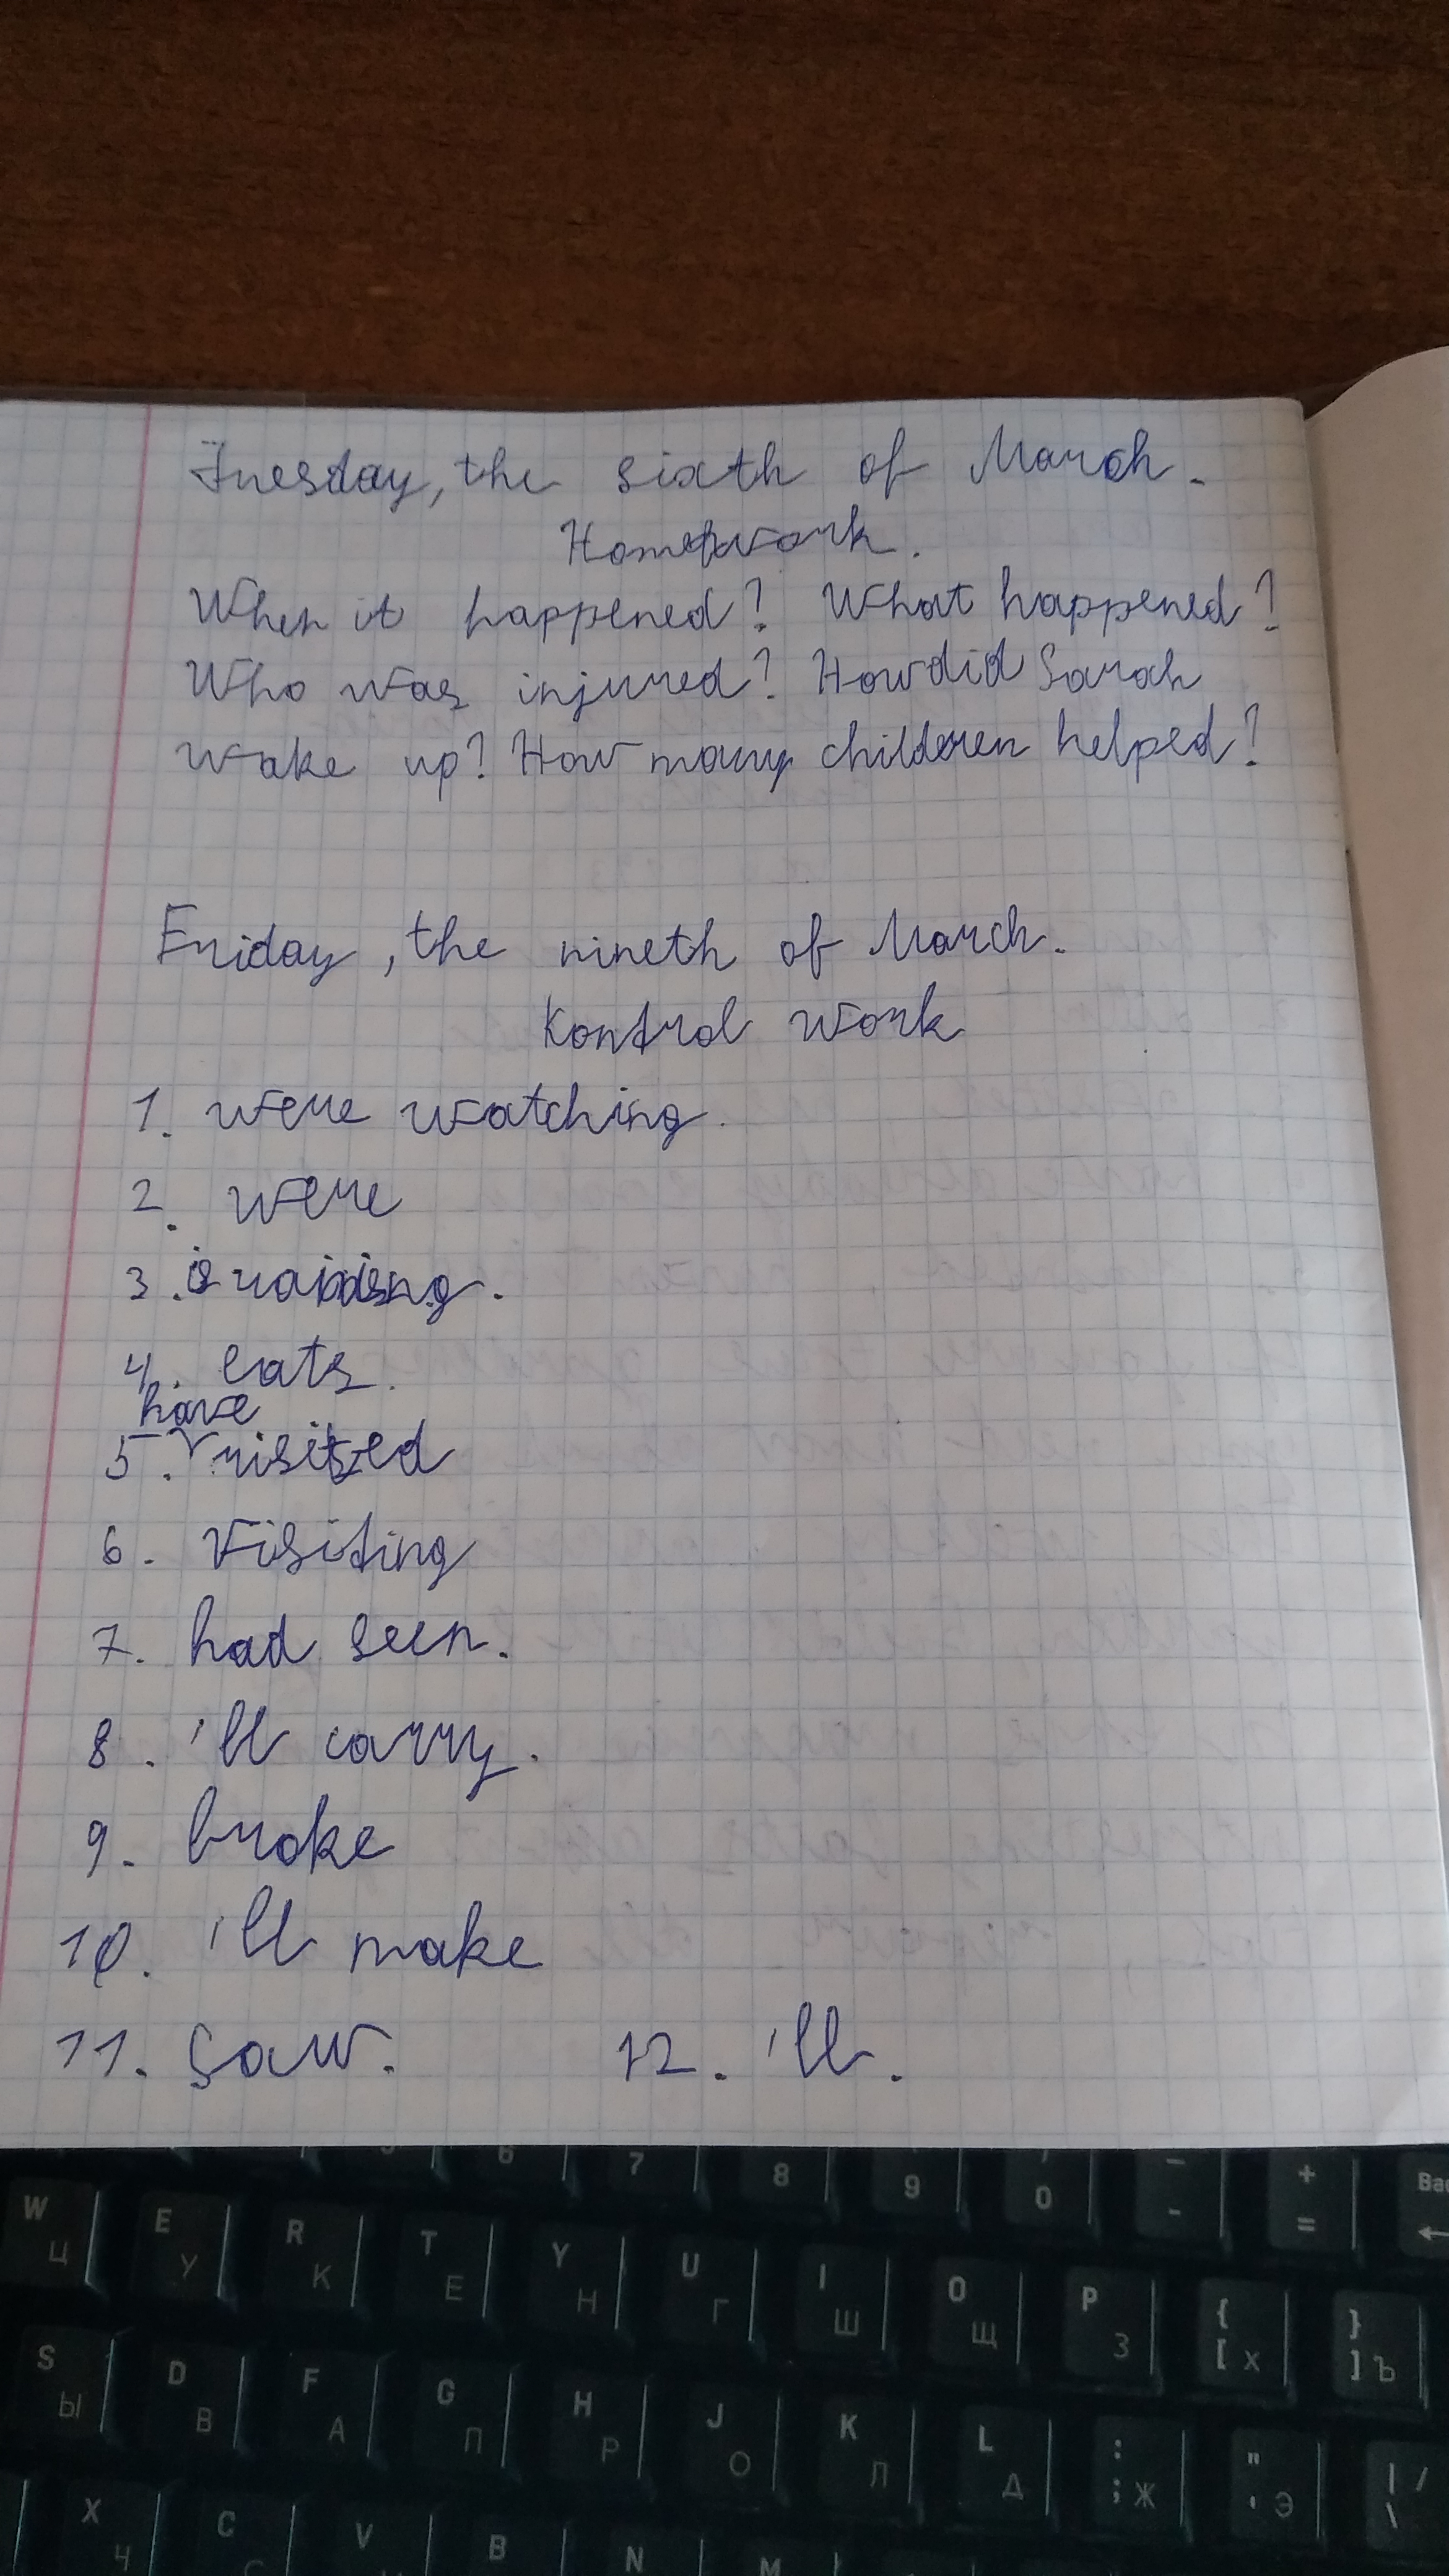 Tuesday, the sixth of March.
Homework.
When it happened? What happened?
Who was injured? How did Sarah
wake up? How many children helped?
Friday, the nineth of March.
Kontrol work
1. were watching.
2. were
3. is raining.
4. eats.
have
5. visited
6. Visiting
7. had seen.
8. 'll carry.
9. broke
10. 'll make
11. saw. 12. 'll.
6 7 8 9 0 - + = Bac
W Ц E У R К T Е Y Н U Г I Ш O Щ P З { [ Х } ] Ъ
S Ы D В F А G П H Р J О K Л L Д : ; Ж " ' Э | / \
X Ч C С V B N M